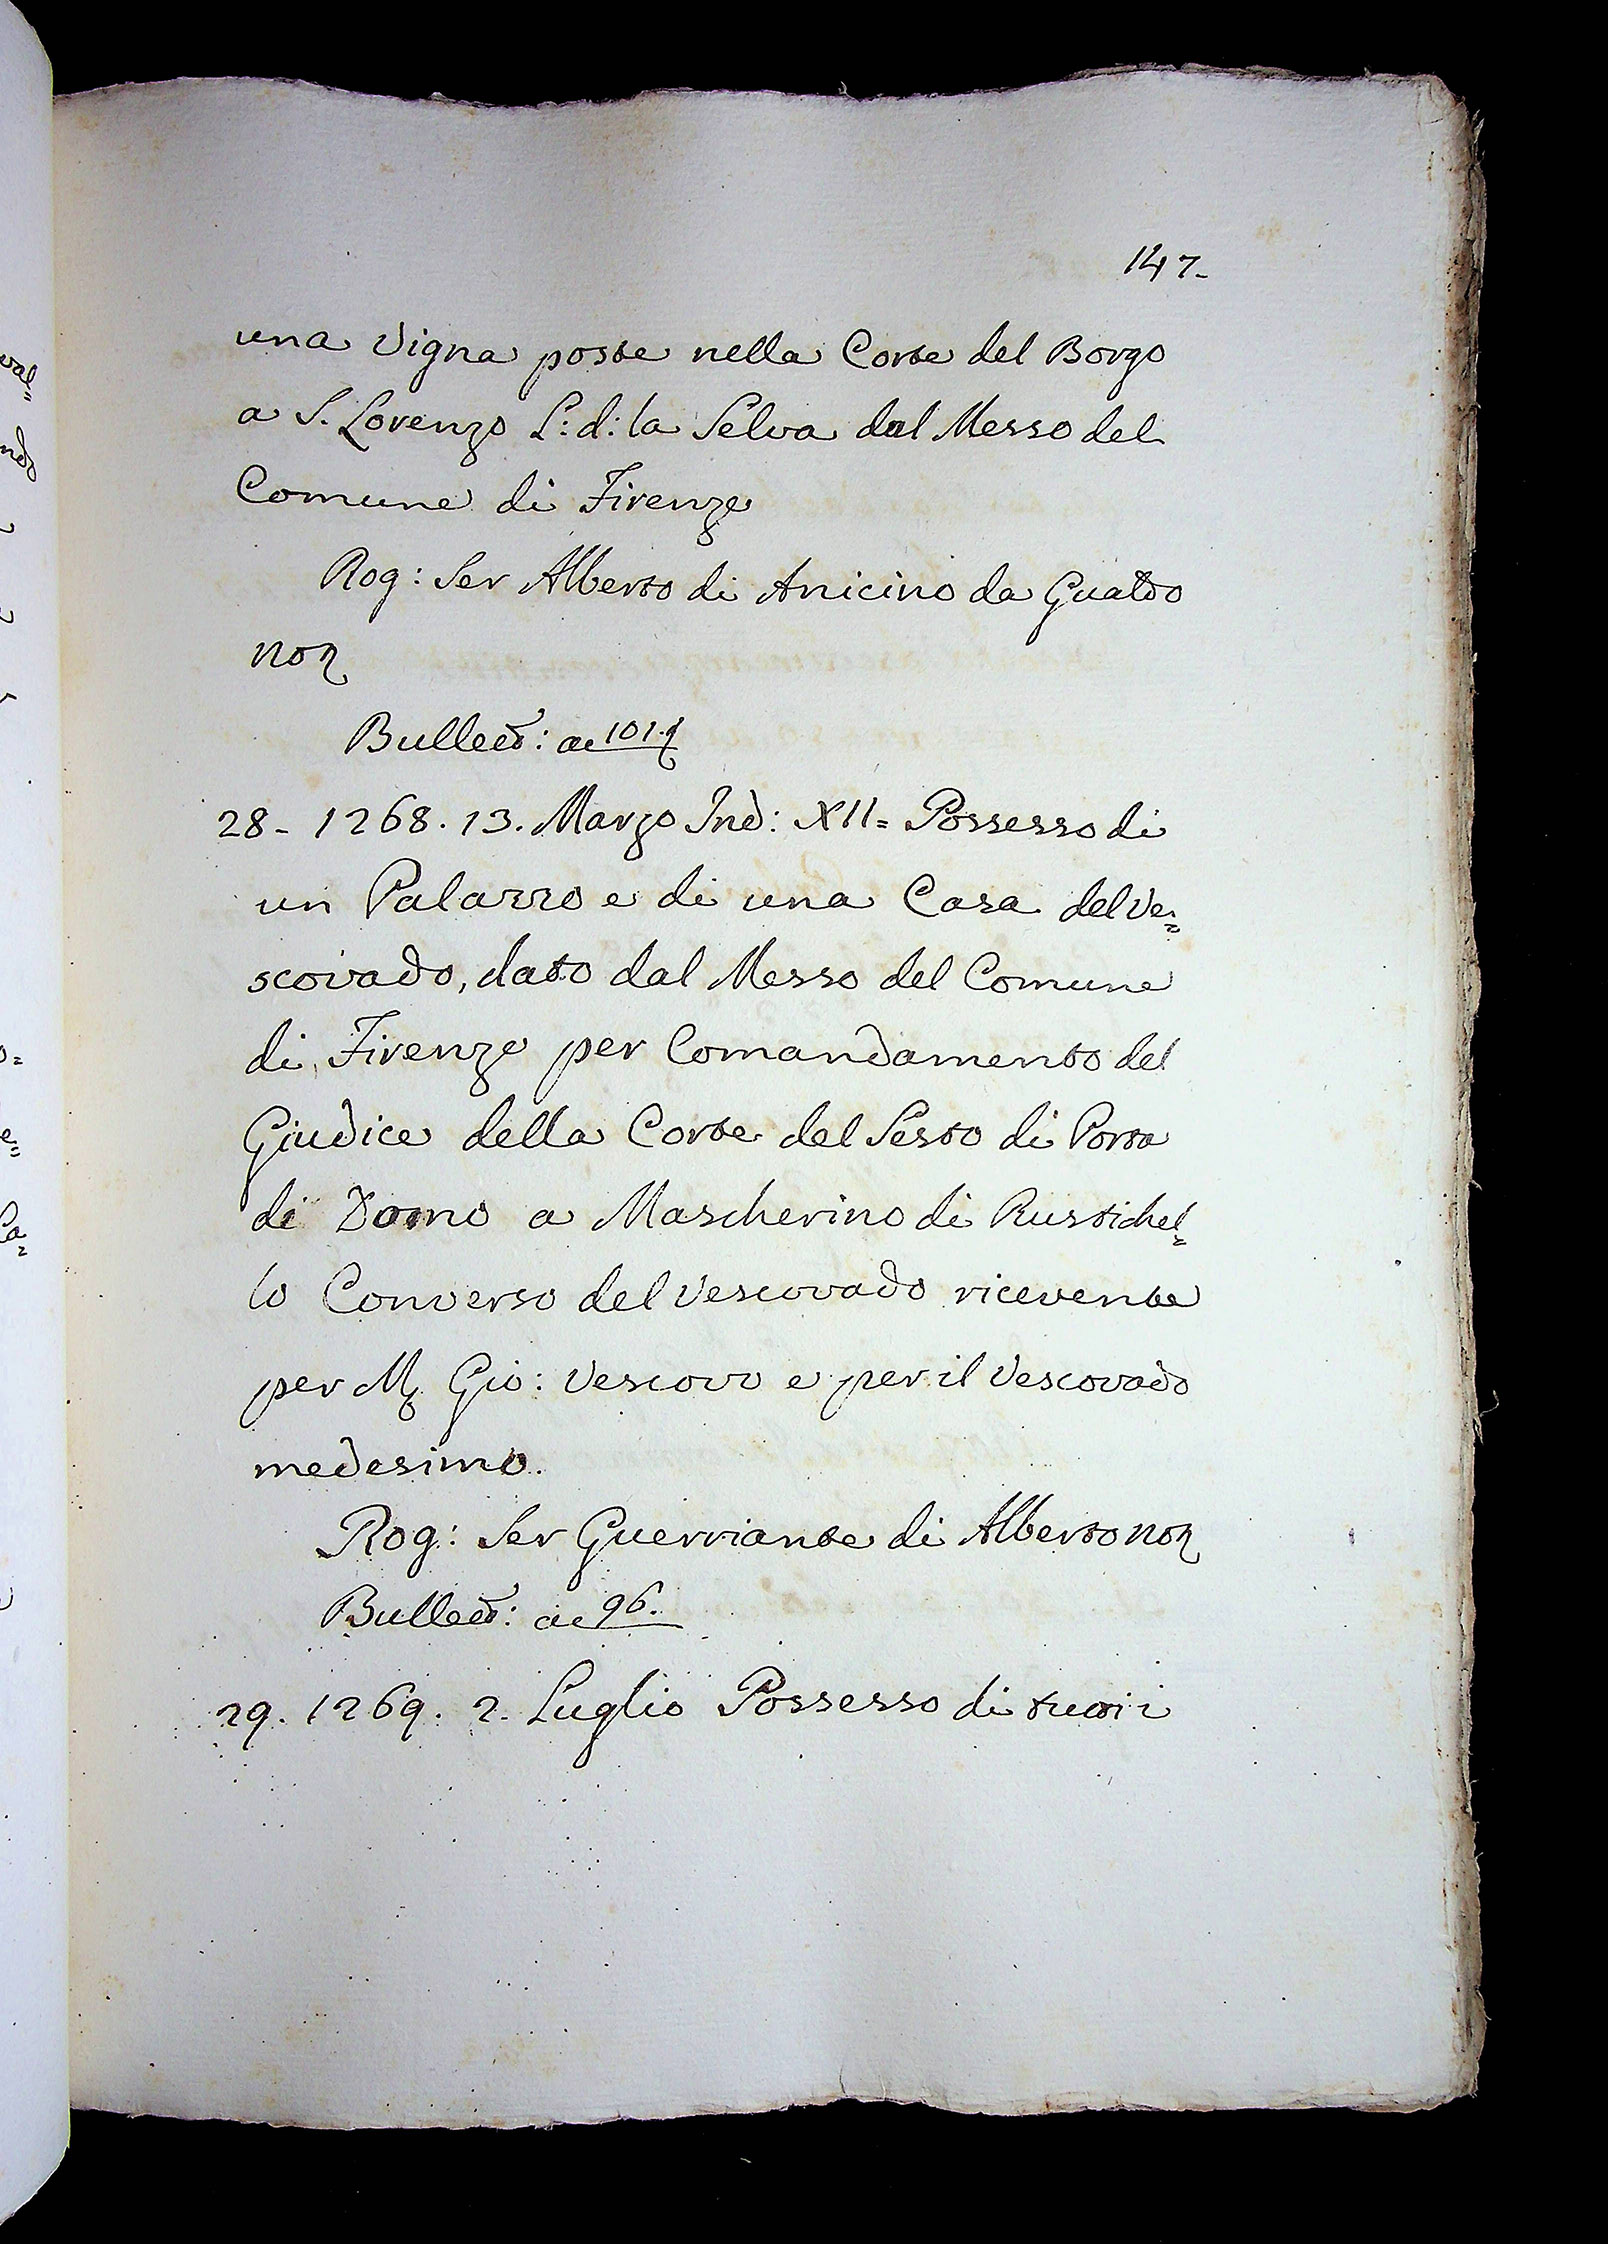 147.
una Vigna poste nella Corte del Borgo
a S. Lorenzo L: d: la Selva dal Messo del
Comune di Firenze
Rog: Ser Alberto di Anicino da Gualdo
Not
Bullett: ac 101.
28 - 1268. 13. Marzo Ind: XII = Possesso di
un Palazzo e di una Casa del Ve=
scovado, dato dal Messo del Comune
di Firenze per Comandamento del
Giudice della Corte del Sesto di Porta
di Domo a Mascherino di Rustichel=
lo Converso del Vescovado ricevente
per M. Gio: Vescovo e per il Vescovado
medesimo.
Rog: Ser Guerriante di Alberto Not
Bullett: ac 96.
29. 1269. 2. Luglio Possesso di tutti i
val=
ndo
o=
e=
Ca=